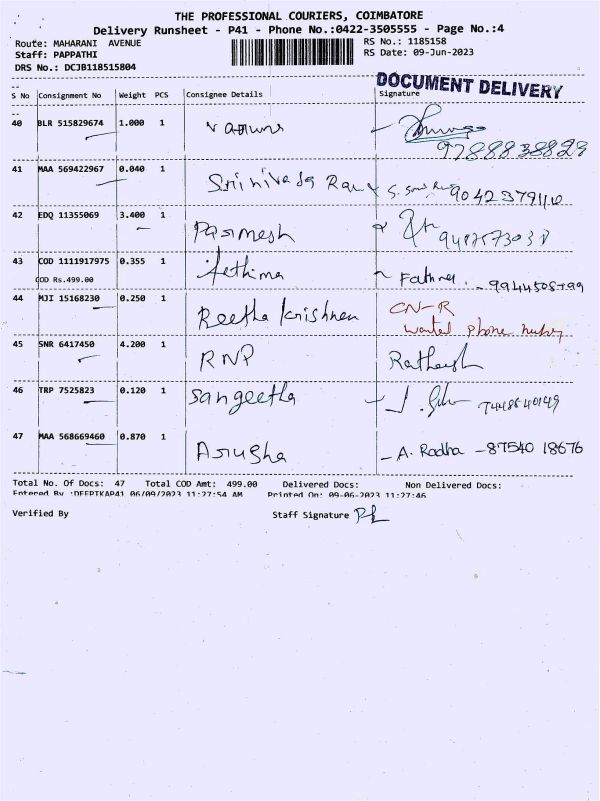 THE PROFESSIONAL COURIERS, COIMBATORE
Delivery Runsheet - P41 - Phone No.:0422-3505555 - Page No.:4
Route: MAHARANI AVENUE RS No.: 1185158
Staff: PAPPATHI RS Date: 09-Jun-2023
DRS No.: DCJB118515804
DOCUMENT DELIVERY
S No Consignment No Weight PCS Consignee Details Signature
40 BLR 515829674 1.000 1
9788838823
41 MAA 569422967 0.040 1 Srinivasa Rao 9042379110
42 EDQ 11355069 3.400 1 Parmesh
43 COD 1111917975 0.355 1 fethima Fathima
COD Rs.499.00
44 MJI 15168230 0.250 1 Reetha krishnan CN-R
wanted phone
45 SNR 6417450 4.200 1 RNP Ratheesh
46 TRP 7525823 0.120 1 Sangeetha 7448640149
47 MAA 568669460 0.870 1 Anusha - A. Radha - 87540 18676
Total No. Of Docs: 47 Total COD Amt: 499.00 Delivered Docs: Non Delivered Docs:
Entered By :DEEPIKAP41 06/09/2023 11:27:54 AM Printed On: 09-06-2023 11:27:46
Verified By Staff Signature